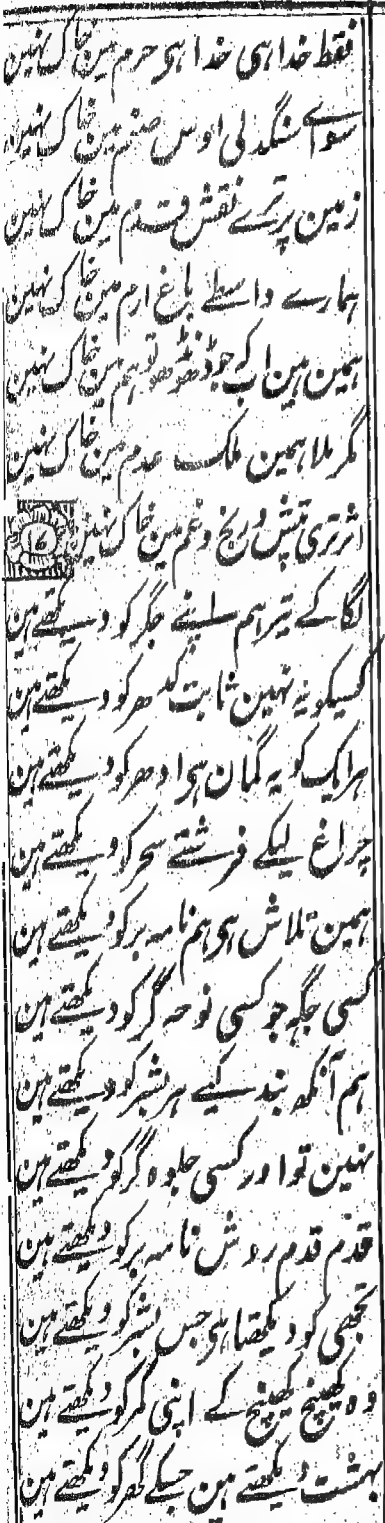 فقط خدا ہی خدا ہی حرم مین خاک نہین
سواے سنگدلی اوس صنم مین خاک نہین
زمین پر ترے نقش قدم مین خاک نہین
ہمارے واسطے باغ ارم مین خاک نہین
ہمین ہین اب کے جو ڈھونڈھو تو ہم مین خاک نہین
مگر ملا ہمین ملک عدم مین خاک نہین
اثر تری تپش و رنج و غم مین خاک نہین
١٦
لگا کے تیر ہم اپنے جگر کو دیکھتے ہین
کسیکو یہ نہین ثابت کدھر کو دیکھتے ہین
ہر ایک کو یہ گمان ہی ادھر کو دیکھتے ہین
چراغ لیکے فرشتے سحر کو دیکھتے ہین
ہمین تلاش ہی ہم نامہ بر کو دیکھتے ہین
کسی جگہ جو کسی نوحہ گر کو دیکھتے ہین
ہم آنکھ بند کیے ہر بشر کو دیکھتے ہین
نہین تو اور کسی جلوہ گر کو دیکھتے ہین
قدم قدم روش نامہ بر کو دیکھتے ہین
تجھی کو دیکھتا ہی جس بشر کو دیکھتے ہین
وہ کھینچ کھینچ کے اپنی کمر کو دیکھتے ہین
بہشت دیکھتے ہین جسکے گھر کو دیکھتے ہین